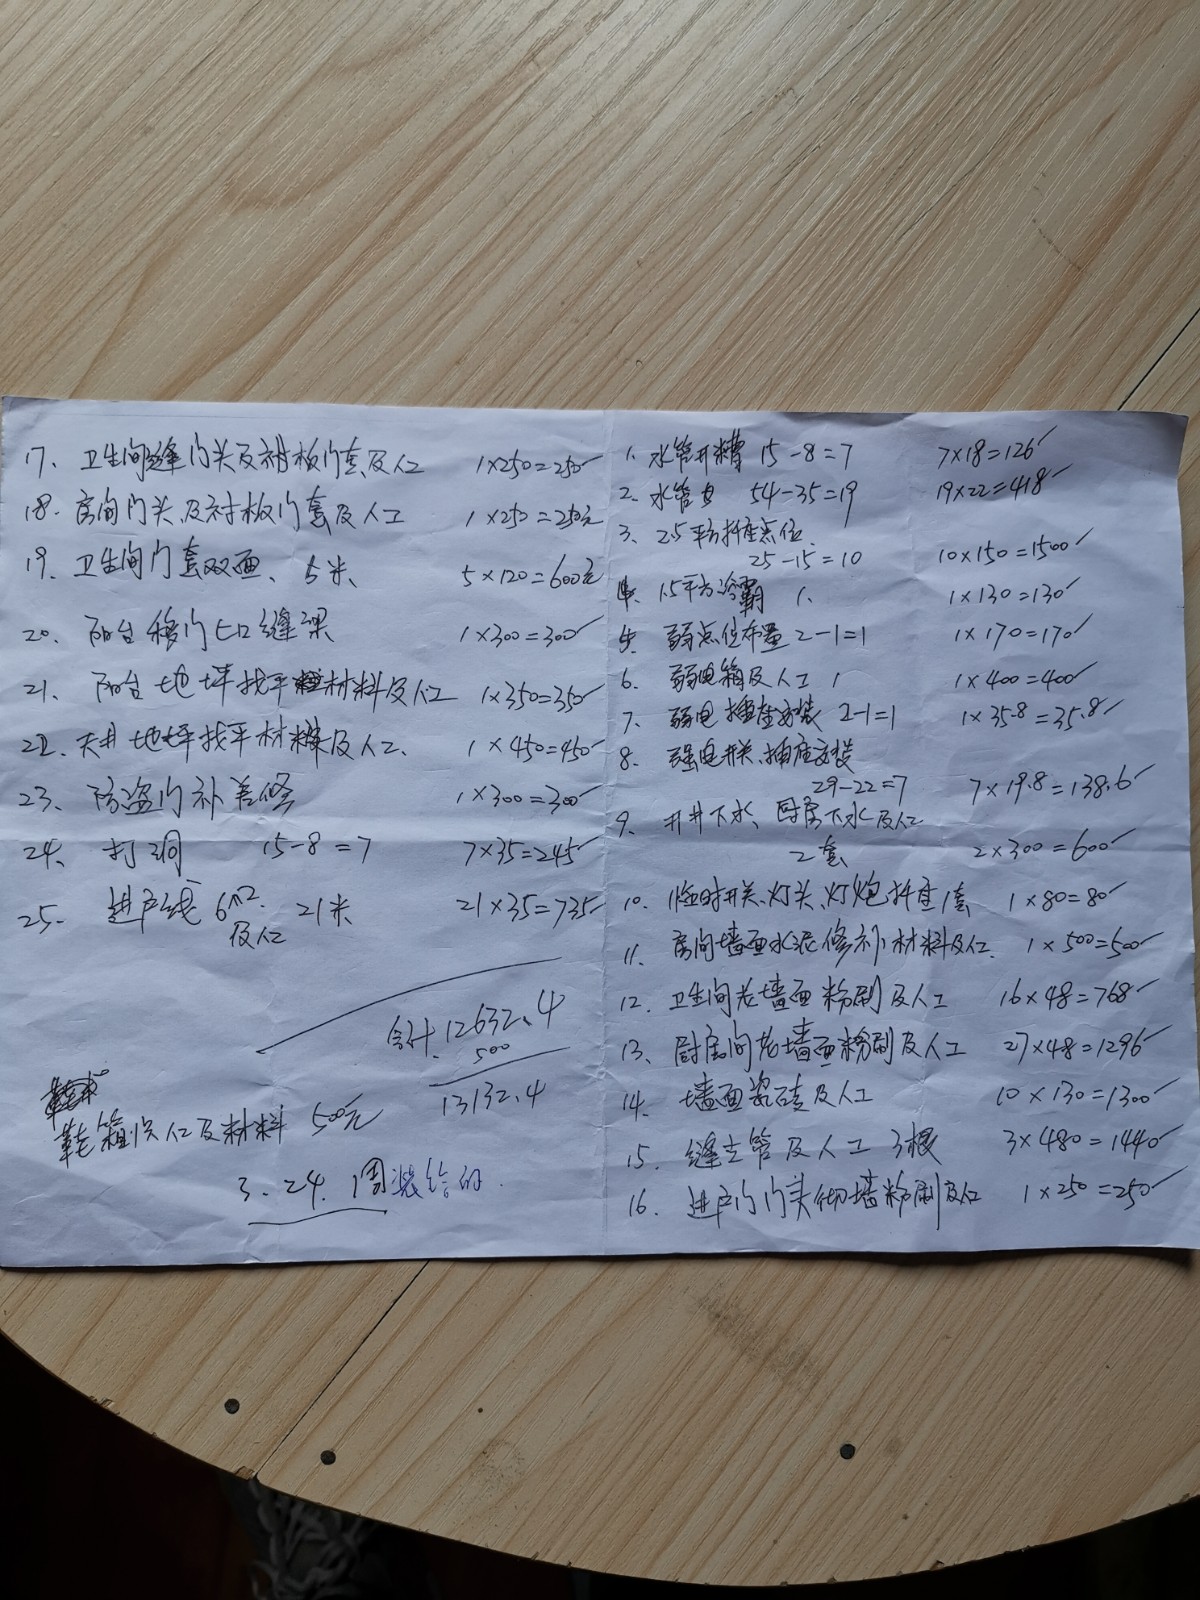 1. 水管开糟 15-8=7 7×18=126
2. 水管 54-35=19 19×22=418
3. 2.5平方插座点位
25-15=10 10×150=1500
4. 1.5平方冷霸 1. 1×130=130
5. 弱点位布置 2-1=1 1×170=170
6. 弱电箱及人工 1 1×400=400
7. 弱电插座安装 2-1=1 1×35.8=35.8
8. 强电开关、插座安装
29-22=7 7×19.8=138.6
9. 下水、厨房下水及人工
2套 2×300=600
10. 临时开关、灯头、灯炮插座1套 1×80=80
11. 房间墙面水泥修补材料及人工 1×500=500
12. 卫生间老墙面粉刷及人工 16×48=768
13. 厨房间老墙面粉刷及人工 27×48=1296
14. 墙面瓷砖及人工 10×130=1300
15. 缝立管及人工 3根 3×480=1440
16. 进户门门头彻墙粉刷及人工 1×250=250
17、卫生间缝门头及衬板门套及人工 1×250=250
18、房间门头及衬板门套及人工 1×250=250元
19、卫生间门套双面、5米、 5×120=600元
20、阳台移门 缝梁 1×300=300
21、阳台地坪找平材料及人工 1×350=350
22、天井地坪找平材料及人工、 1×450=450
23、防盗门补差修 1×300=300
24、打洞 15-8=7 7×35=245
25. 进户线 6m2. 21米 21×35=735
及人工
合计.12632.4
500
13132.4
鞋箱 人工及材料 500元
3.24. 1周装给的.